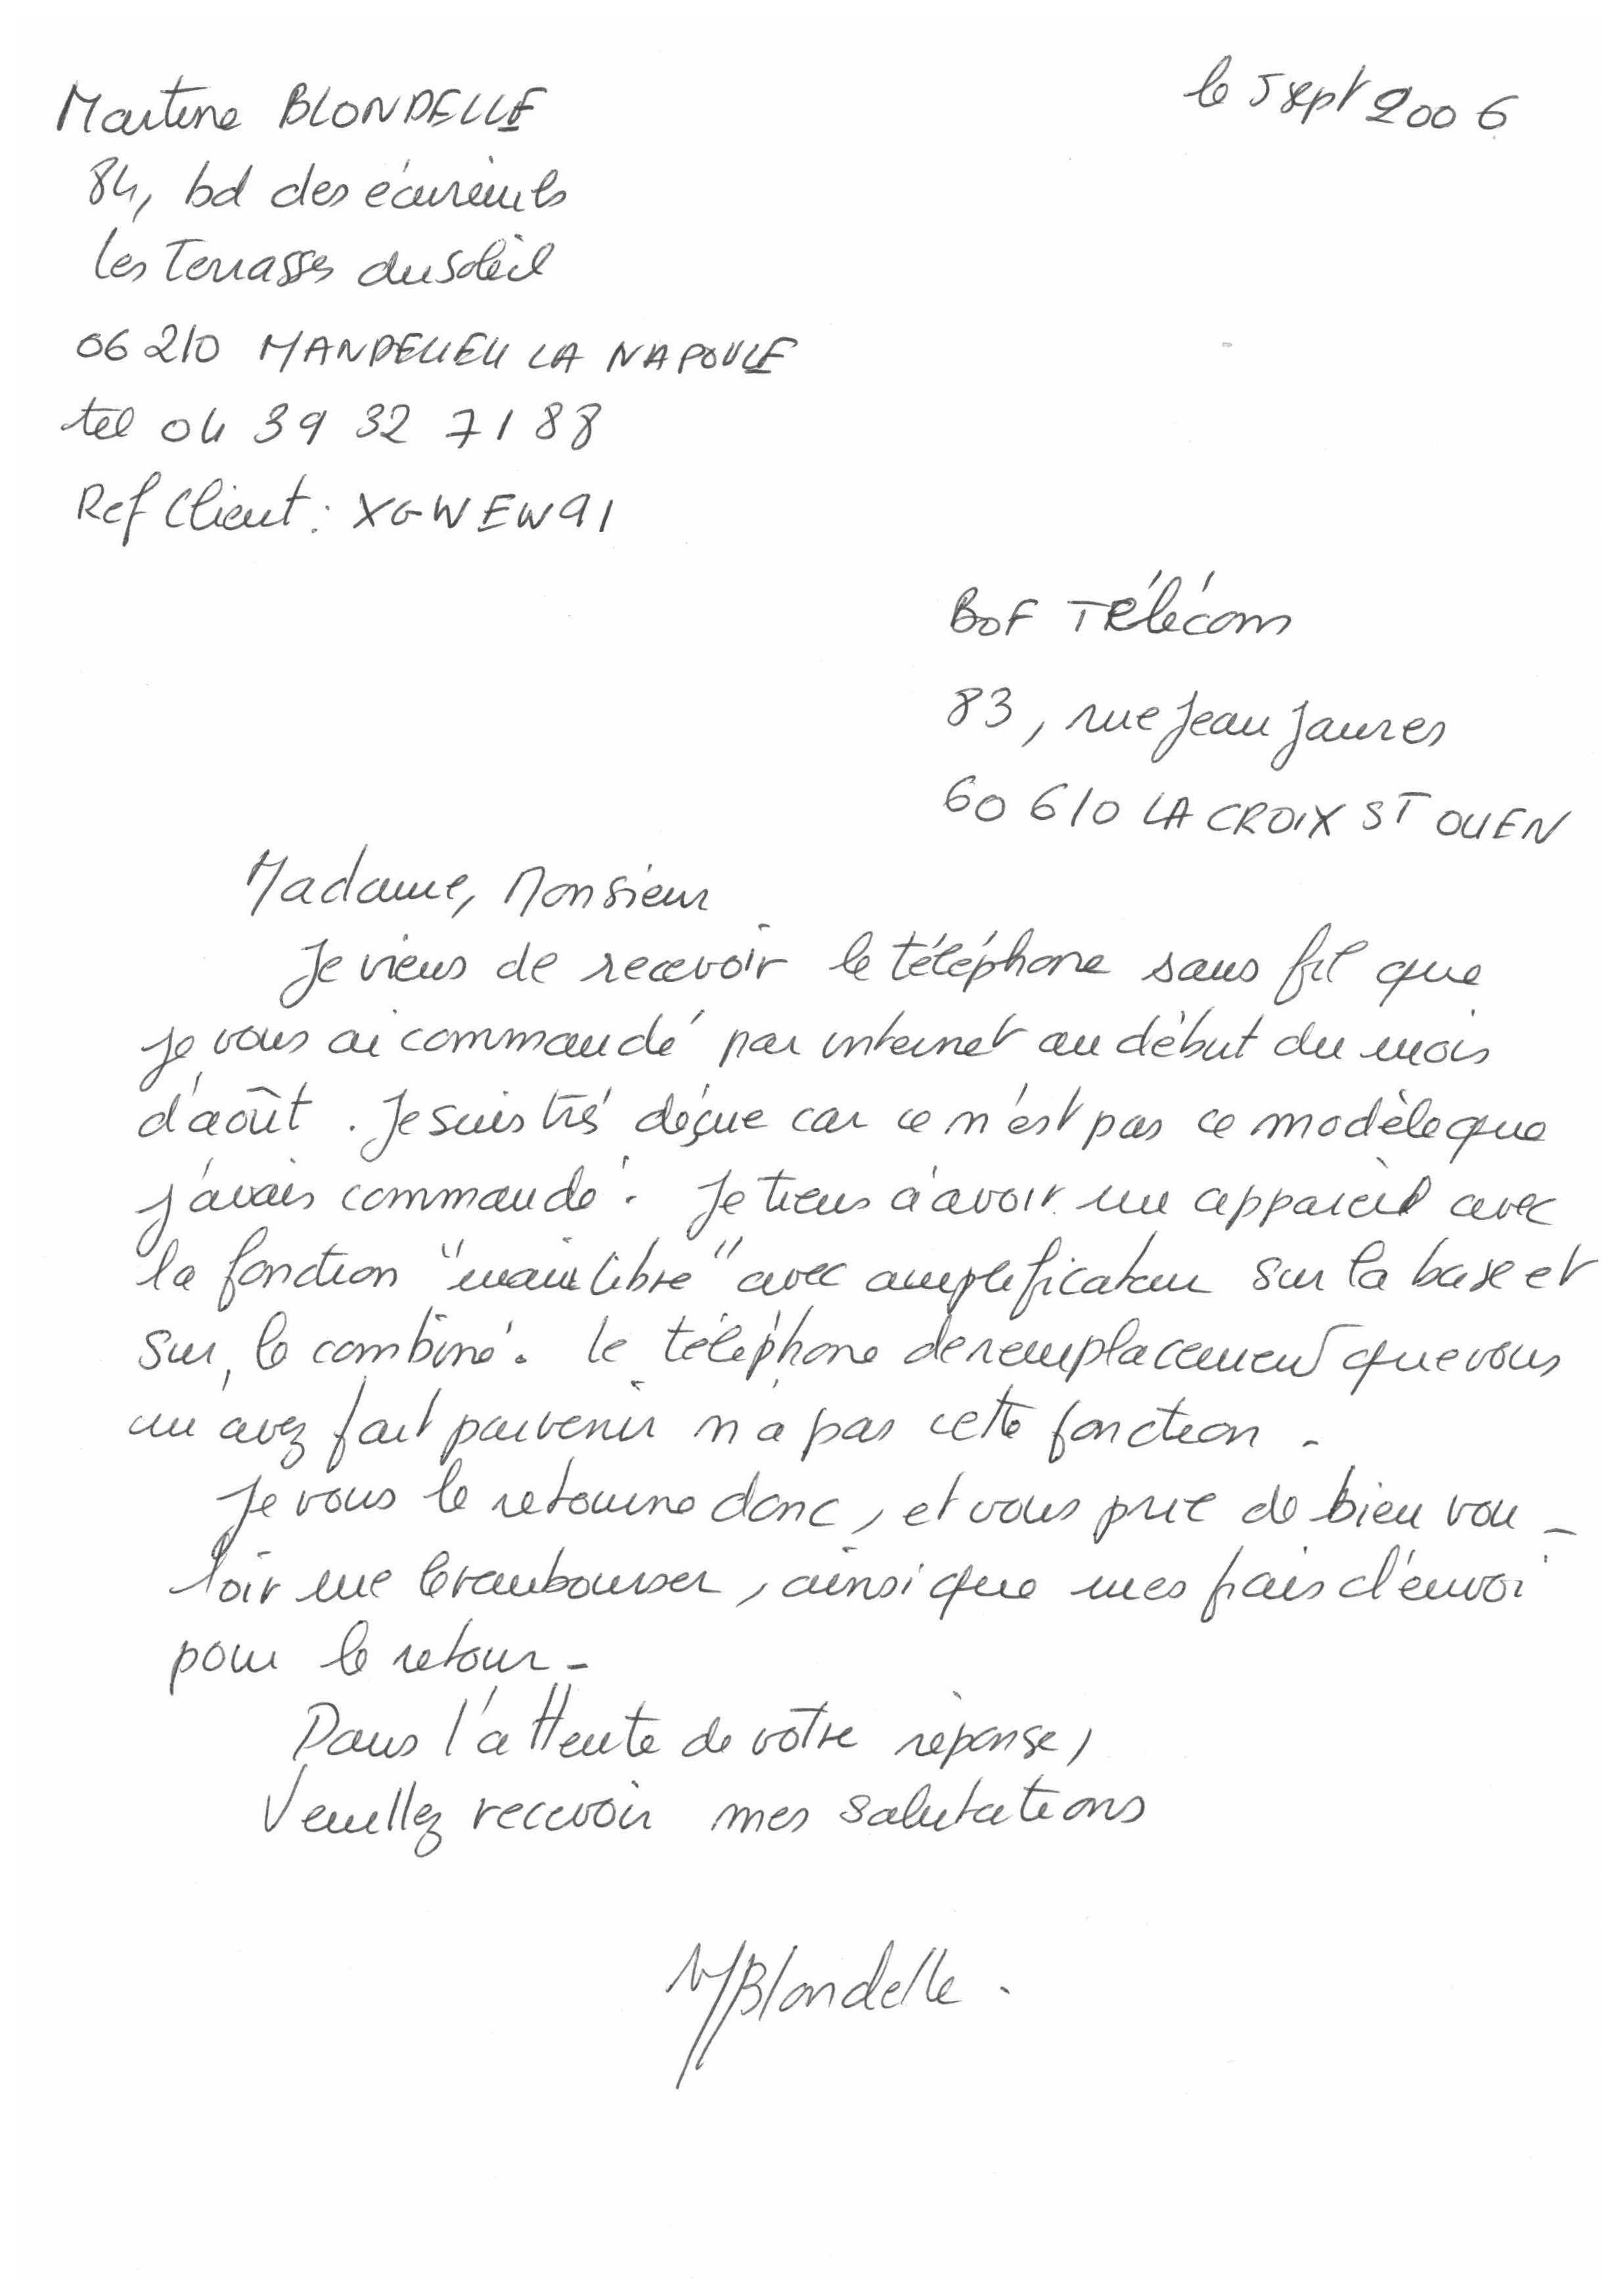 Martine BLONDELLE
le 5 sept 2006
84, bd des écureuils
les Terrasses du soleil
06 210 MANDELIEU LA NAPOULE
tel 04 39 32 71 88
Ref Client : XGWEW91
BOF TÉlécom
83, rue Jean Jaures
60 610 LA CROIX ST OUEN
Madame, Monsieur
Je viens de recevoir le téléphone sans fil que
je vous ai commandé par internet au début du mois
d'août. Je suis trés déçue car ce n'est pas ce modèle que
j'avais commandé. Je tiens à avoir un appareil avec
la fonction "main libre" avec amplificateur sur la base et
sur le combiné. le téléphone de remplacement que vous
m'avez fait parvenir n'a pas cette fonction.
Je vous le retourne donc, et vous prie de bien vou-
loir me le rembourser, ainsi que mes frais d'envoi
pour le retour.
Dans l'attente de votre réponse,
Veuillez recevoir mes salutations
MBlondelle.